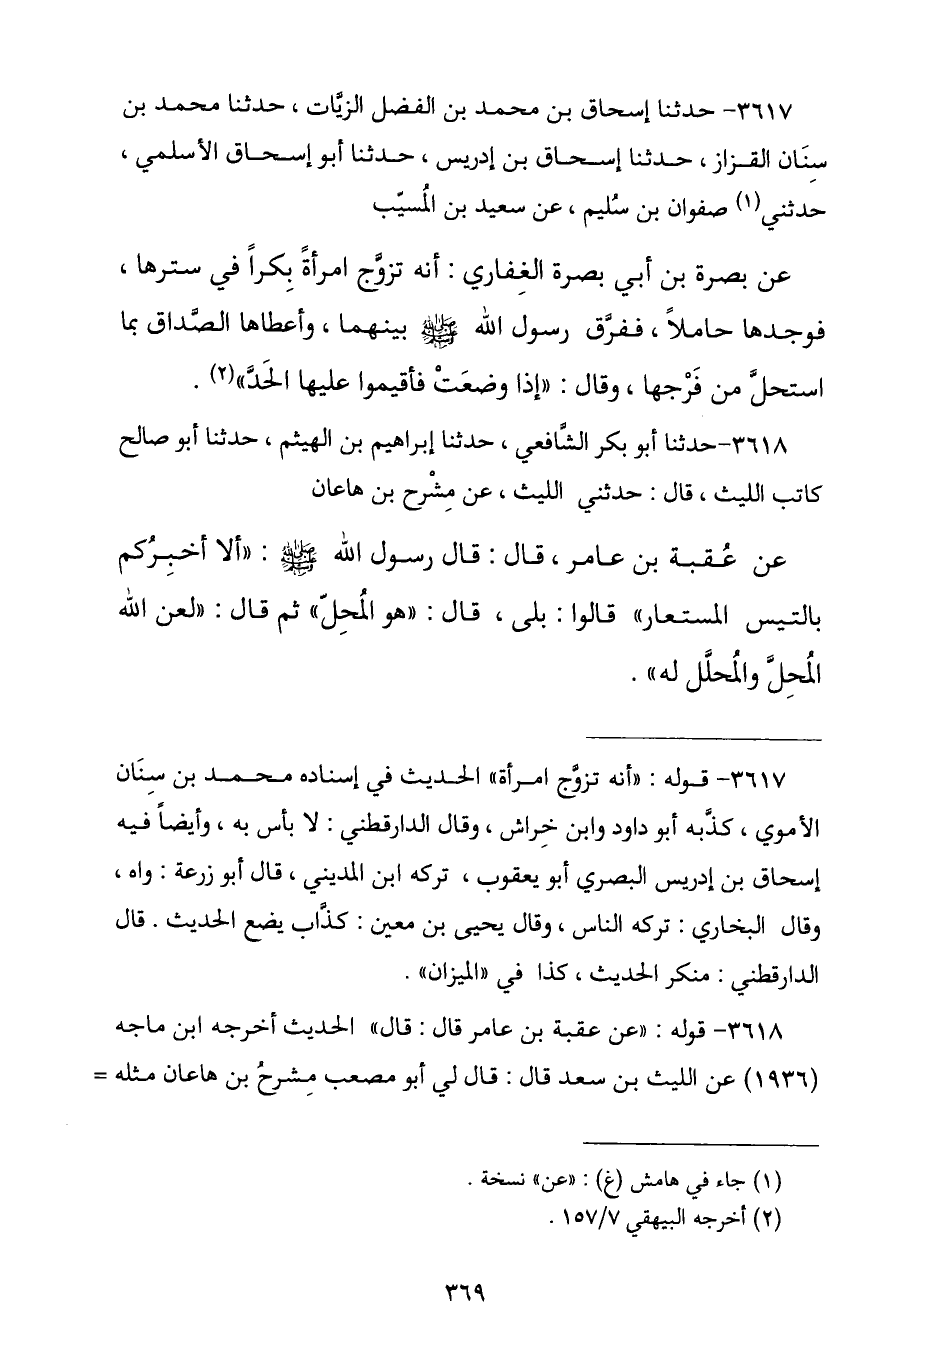 ٣٦١٧- حدثنا إسحاق بن محمد بن الفضل الزيَّات ، حدثنا محمد بن
سِنَان القزاز ، حدثنا إسحاق بن إدريس ، حدثنا أبو إسحاق الأسلمي ،
حدثني(١) صفوان بن سُليم ، عن سعيد بن المُسيّب
عن بصرة بن أبي بصرة الغِفاري : أنه تزوَّج امرأةً بِكراً في سترها ،
فوجدها حاملاً ، ففرَّق رسول الله ﷺ بينهما ، وأعطاها الصَّداق بما
استحلَّ من فَرْجها ، وقال : «إذا وضعَتْ فأقيموا عليها الحَدَّ»(٢) .
٣٦١٨-حدثنا أبو بكر الشَّافعي ، حدثنا إبراهيم بن الهيثم ، حدثنا أبو صالح
كاتب الليث ، قال : حدثني الليث ، عن مِشْرح بن هاعان
عن عُقبة بن عامر ، قال : قال رسول الله ﷺ : «ألا أخبِرُكم
بالتيس المستعار» قالوا : بلى ، قال : «هو المُحِلّ» ثم قال : «لعن الله
المُحِلَّ والمُحلَّل له» .
٣٦١٧- قوله : «أنه تزوَّج امرأة» الحديث في إسناده محمد بن سِنَان
الأموي ، كذَّبه أبو داود وابن خِراش ، وقال الدارقطني : لا بأس به ، وأيضاً فيه
إسحاق بن إدريس البصري أبو يعقوب ، تركه ابن المديني ، قال أبو زرعة : واه ،
وقال البخاري : تركه الناس ، وقال يحيى بن معين : كذَّاب يضع الحديث . قال
الدارقطني : منكر الحديث ، كذا في «الميزان» .
٣٦١٨- قوله : «عن عقبة بن عامر قال : قال» الحديث أخرجه ابن ماجه
(١٩٣٦) عن الليث بن سعد قال : قال لي أبو مصعب مِشرحُ بن هاعان مثله =
(١) جاء في هامش (غ) : «عن» نسخة .
(٢) أخرجه البيهقي ١٥٧/٧ .
٣٦٩